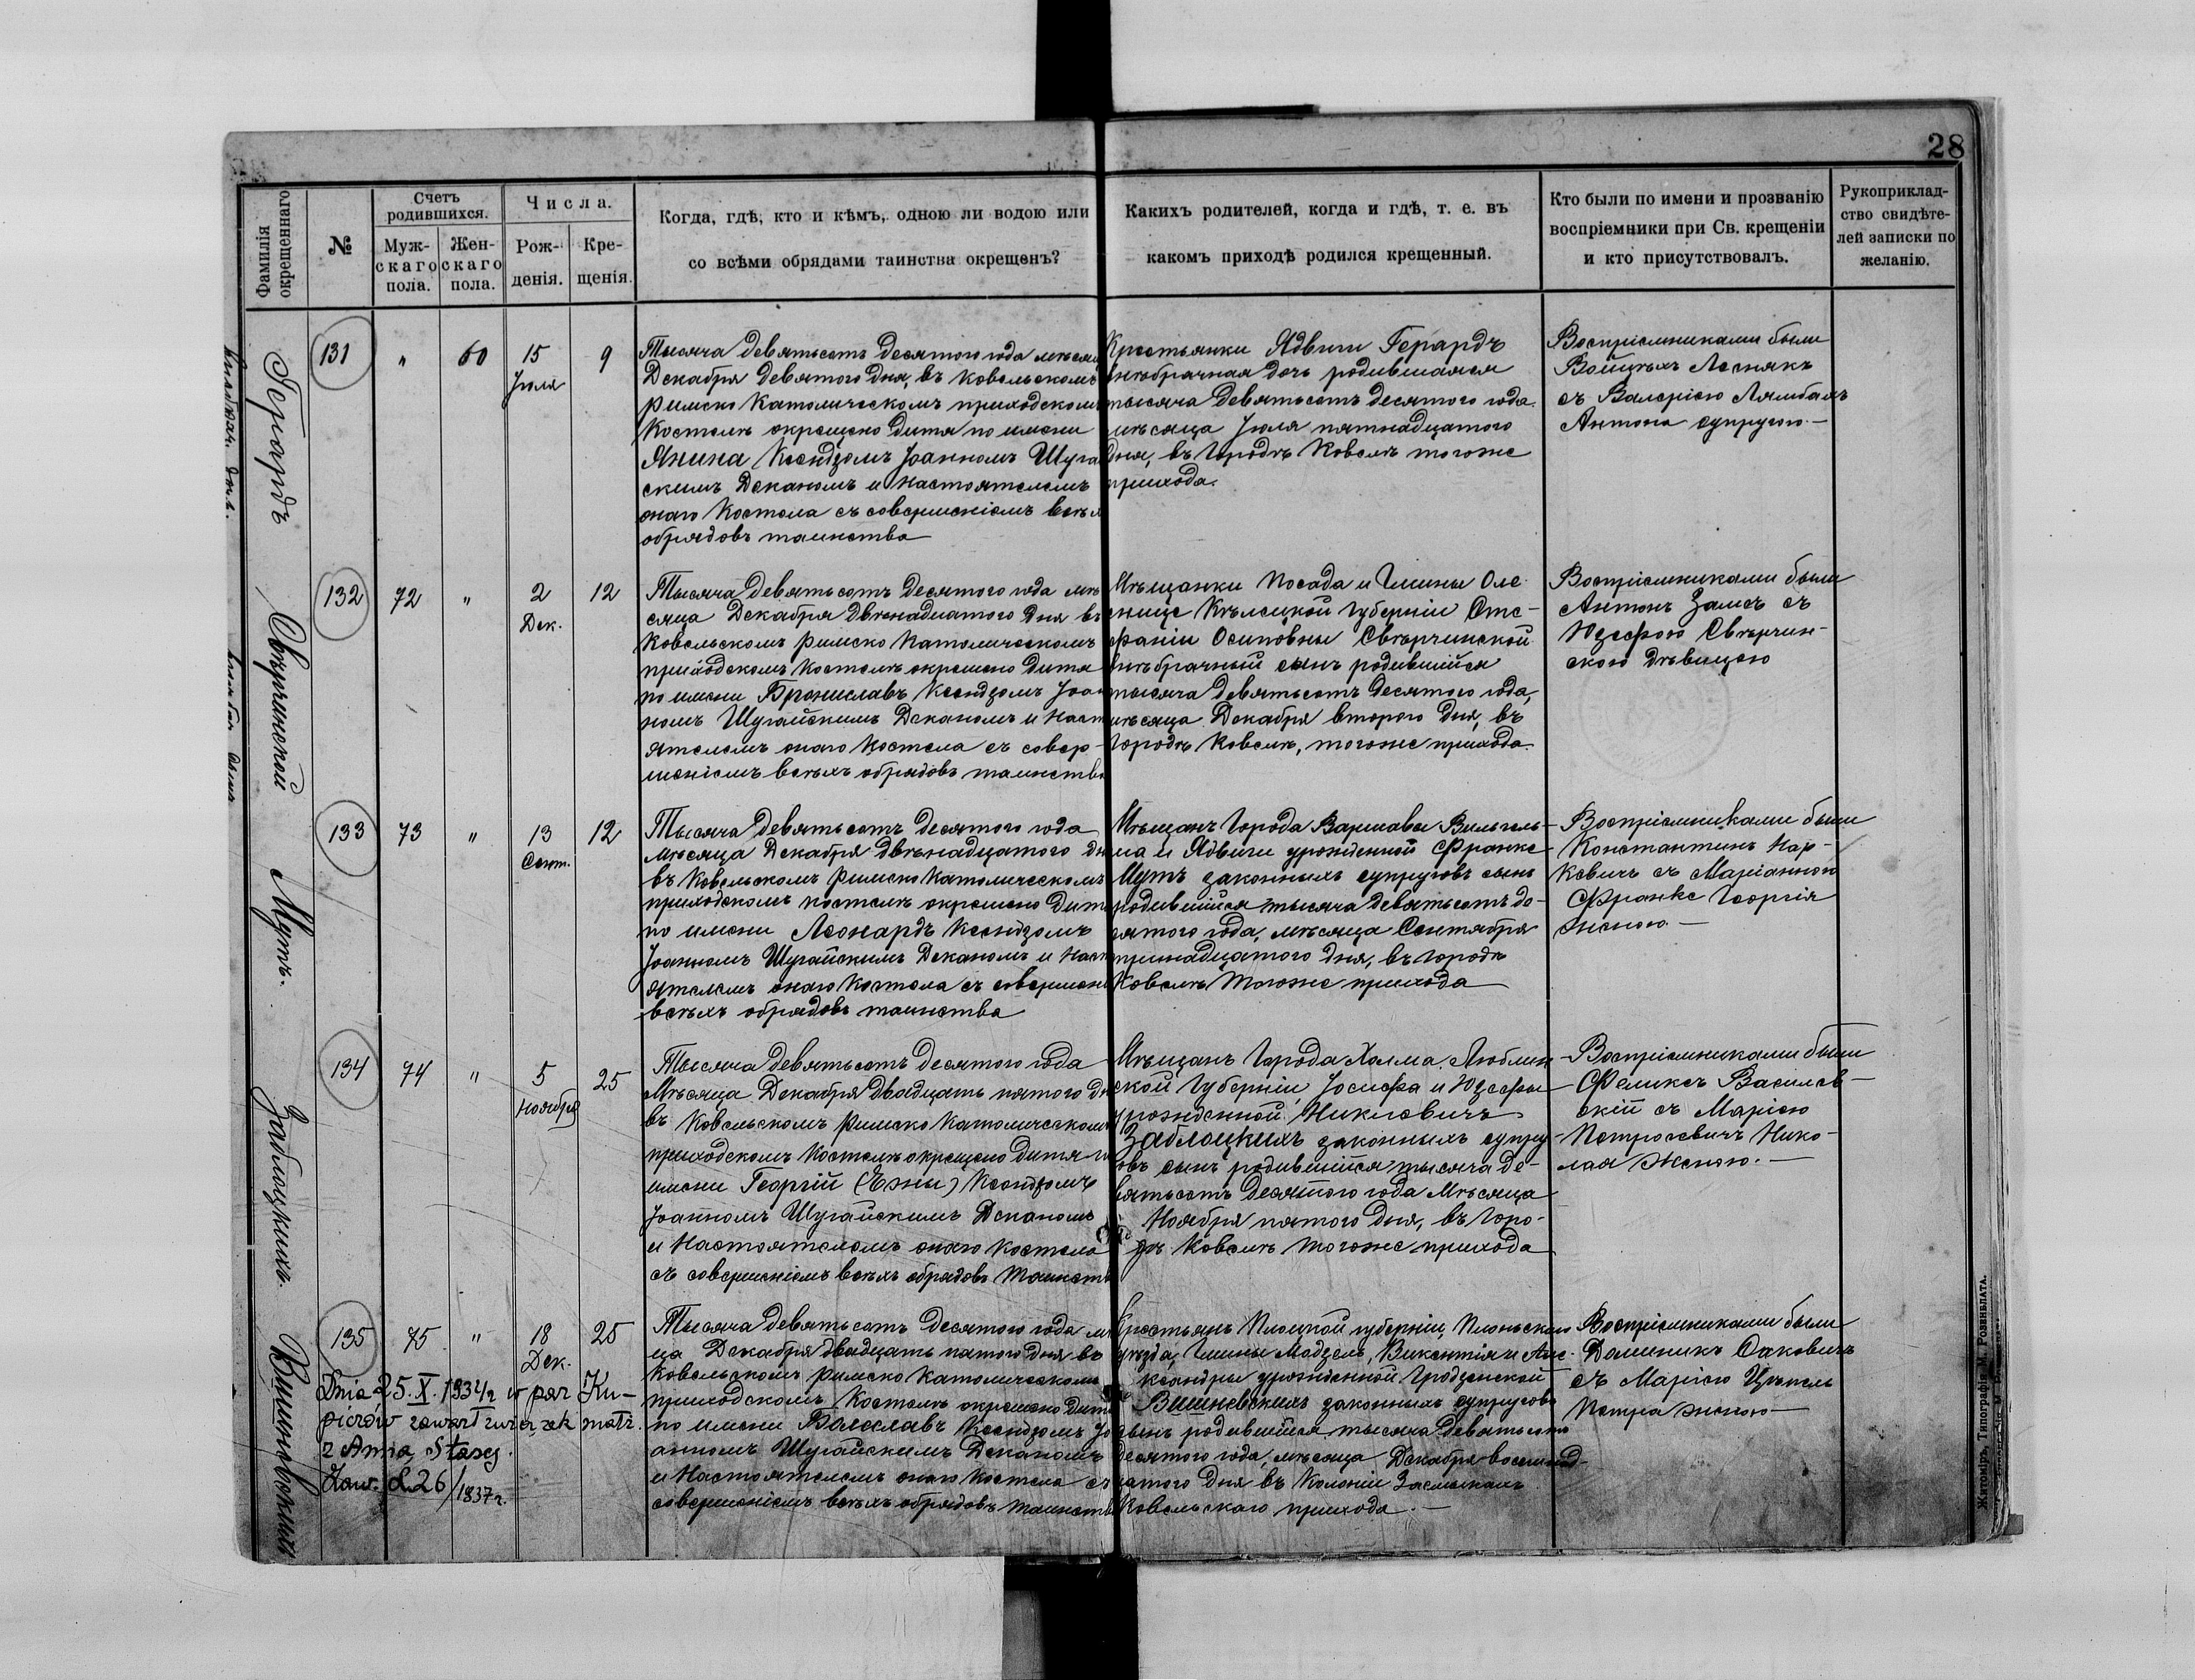 28
Фамилія окрещеннаго
№
Счетъ родившихся.
Муж-
скаго
пола.
Жен-
скаго
пола.
Числа.
Рож-
денія.
Кре-
щенія.
Когда, гдѣ, кто и кѣмъ, одною ли водою или
со всѣми обрядами таинства окрещенъ?
Какихъ родителей, когда и гдѣ, т. е. въ
какомъ приходѣ родился крещенный.
Кто были по имени и прозванію
воспріемники при Св. крещеніи
и кто присутствовалъ.
Рукоприклад-
ство свидѣте-
лей записки по
желанію.
Герардъ
131
"
60
15
Іюля
9
Тысяча девятьсотъ десятого года мѣсяц
Декабря девятого дня, въ Ковельскомъ
Римско Католическомъ приходскомъ
Костелѣ окрещено дитя по имени
Янина Ксендзомъ Іоанномъ Шуга
скимъ Деканомъ и Настоятелемъ
онаго Костела съ совершеніемъ всѣх
обрядовъ таинства
Крестьянки Ядвиги Герардъ
внѣбрачная дочь родившаяся
тысяча девятьсотъ десятого года
мѣсяца Іюля пятнадцатого
дня, въ Городѣ Ковелѣ тогоже
прихода.
Воспріемниками были
Войцѣхъ Леснякъ
съ Валеріею Лямбахъ
Антона супругою.—
Свѣрчинской
132
72
"
2
Дек.
12
Тысяча девятьсотъ десятого года мѣ
сяца Декабря двѣнадцатого дня въ
Ковельскомъ Римско Католическомъ
приходскомъ Костелѣ окрещено дитя
по имени Брониславъ Ксендзомъ Іоан
номъ Шугайскимъ Деканомъ и Наст
ятелемъ онаго Костела съ совер-
шеніемъ всѣхъ обрядовъ таинства
Мѣщанки Посада и Гмины Оле-
снице Кѣлецкой Губерніи Сте-
фаніи Осиповны Свѣрчинской
внѣбрачный сынъ родившійся
тысяча девятьсотъ десятого года,
мѣсяца Декабря второго дня, въ
Городѣ Ковелѣ, тогоже прихода.
Воспріемниками были
Антонъ Замесъ съ
Юзефою Свѣрчин-
скою дѣвицею
Мутъ.
133
73
"
13
Сент.
12
Тысяча девятьсотъ десятого года
Мѣсяца Декабря двѣнадцатого дн
въ Ковельскомъ Римско Католическомъ
приходскомъ костелѣ окрещено дитя
по имени Леонардъ Ксендзомъ
Іоанномъ Шугайскимъ Деканомъ и Наст
ятелемъ онаго Костела съ совершені
всѣхъ обрядовъ таинства
Мѣщанъ Города Варшавы Вильгель-
ма и Ядвиги урожденной Франке
Мутъ законныхъ супруговъ сынъ
родившійся тысяча девятьсотъ де-
сятого года, мѣсяца Сентября
тринадцатого дня, въ Городѣ
Ковелѣ тогоже прихода
Воспріемниками были
Константинъ Нар-
кевичъ съ Маріанною
Франке Георгія
женою.—
Заблоцкихъ.
134
74
"
5
Ноября
25
Тысяча девятьсотъ десятого года
Мѣсяца Декабря двадцать пятого дн
въ Ковельскомъ Римско Католическомъ
приходскомъ Костелѣ окрещено дитя п
имени Георгій (Ежы) Ксендзомъ
Іоанномъ Шугайскимъ Деканомъ
и Настоятелемъ онаго костела
съ совершеніемъ всѣхъ обрядовъ таинств
Мѣщанъ Города Холма Люблин
ской Губерніи, Іосифа и Юзефы
урожденной Никлевичъ
Заблоцкихъ законныхъ супру-
овъ сынъ родившійся тысяча де-
вятьсотъ десятого года Мѣсяца
Ноября пятого дня, въ Горо-
дѣ Ковелѣ тогоже прихода
Воспріемниками были
Феликсъ Василев-
скій съ Маріею
Петросевичъ Нико-
лая женою.—
Вишневскихъ
135
75
"
18
Дек.
25
Dnia 25. X. 1934 r w par Ku-
piczów zawarł związek małż.
z Anną Stasej.
Zaw. d. 26/1937 r.
Тысяча девятьсотъ десятого года мѣ
ца Декабря двадцать пятого дня въ
Ковельскомъ Римско Католическомъ
приходскомъ Костелѣ окрещено дитя
по имени Болеславъ Ксендзомъ Іо
анномъ Шугайскимъ Деканомъ
и Настоятелемъ онаго Костела съ
совершеніемъ всѣхъ обрядовъ таинств
Крестьянъ Плоцкой губерніи, Плоньскаго
уѣзда, Гмины Модзель, Викентія и Але-
ксандры урожденной Гродзенской
Вишневскихъ законныхъ супруговъ
сынъ родившійся тысяча девятьсотъ
десятого года, мѣсяца Декабря восемнад-
цатого дня въ Колоніи Засмыкахъ
Ковельскаго прихода.—
Воспріемниками были
Доминикъ Саковичъ
съ Маріею Цѣпель
Петра женою—
Житоміръ, Типографія М. Розенблата.